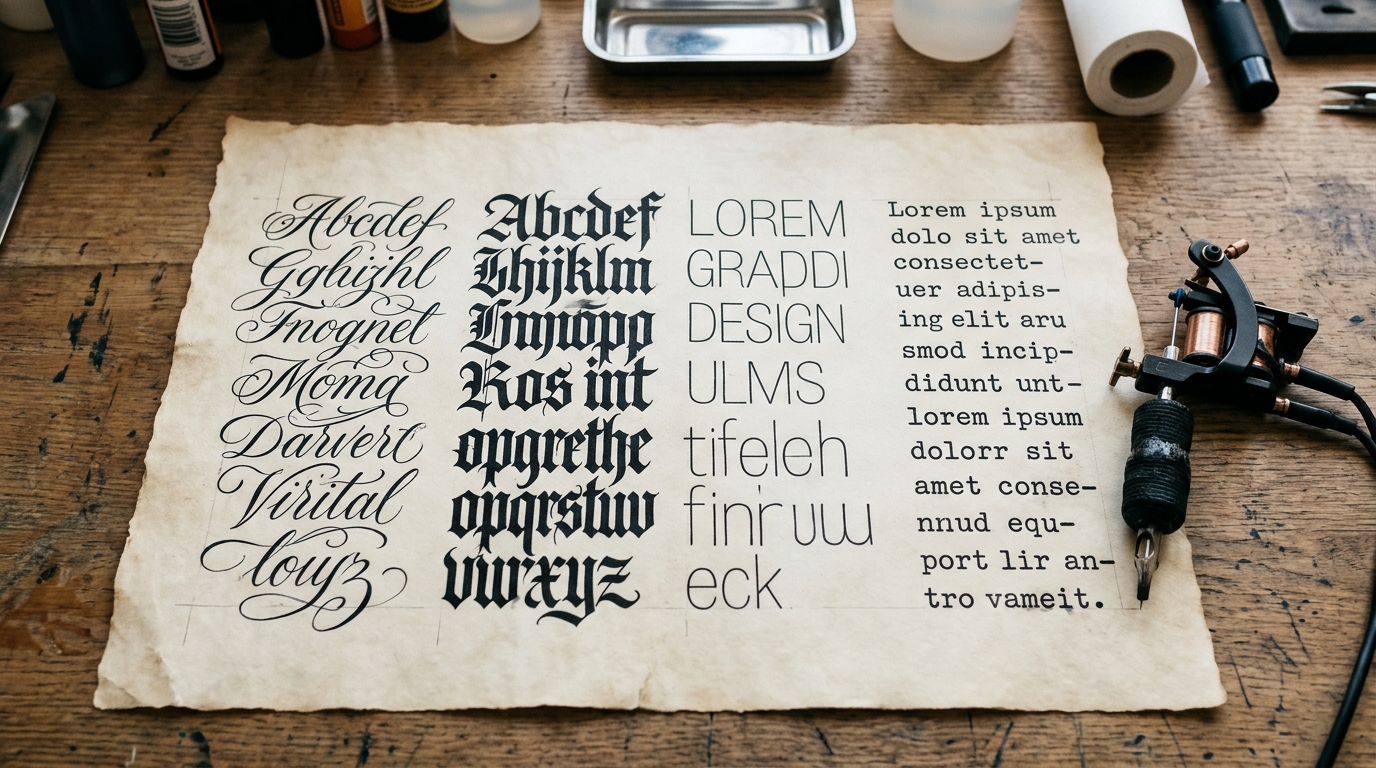 Abcdef
Gghijhl
Fnognet
Moma
Darvert
Virital
louyz
Abcdef
Ghijklm
Lmnōpp
Kos int
opgrethe
opqrstuv
vwrxyz
LOREM
GRAPDI
DESIGN
ULMS
tifeleh
finruw
eck
Lorem ipsum
dolo sit amet
consectet-
uer adipis-
ing elit aru
smod incip-
didunt unt-
lorem ipsum
dolorr sit
amet conse-
nnud equ-
port lir an-
tro vameit.